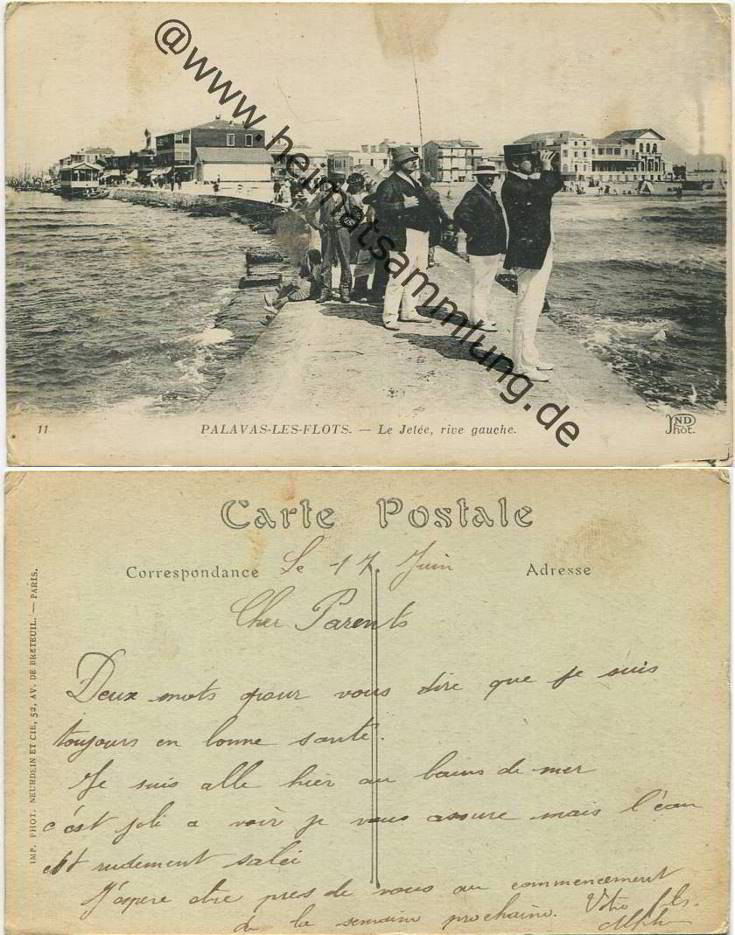 @www.heimatsammlung.de
11 PALAVAS-LES-FLOTS. — Le Jetée, rive gauche. ND Phot.
Carte Postale
Correspondance Le 17 Juin Adresse
Cher Parents
Deux mots pour vous dire que je suis
toujours en bonne santé.
Je suis alle hier au bains de mer
c'est joli a voir je vous assure mais l'eau
est rudement salée
J'espere etre pres de vous au commencement
de la semaine prochaine. Votre fils.
IMP. PHOT. NEURDEIN ET CIE, 52, AV. DE BRETEUIL. — PARIS.